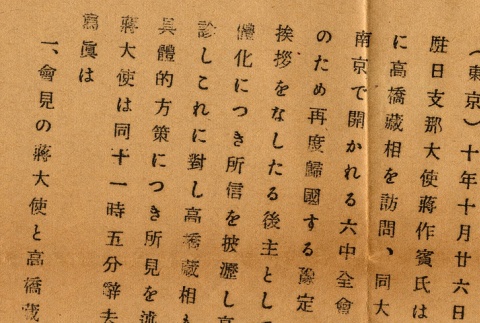 （東京）十年十月廿六日
駐日支那大使蔣作賓氏は
に高橋藏相を訪問、同大
南京で開かれる六中全會
のため再度歸國する豫定
挨拶をなしたる後主として
體化につき所信を披瀝し高
診しこれに對し高橋藏相も
具體的方策につき所見を述
蔣大使は同十一時五分辭去
寫眞は
一、會見の蔣大使と高橋藏